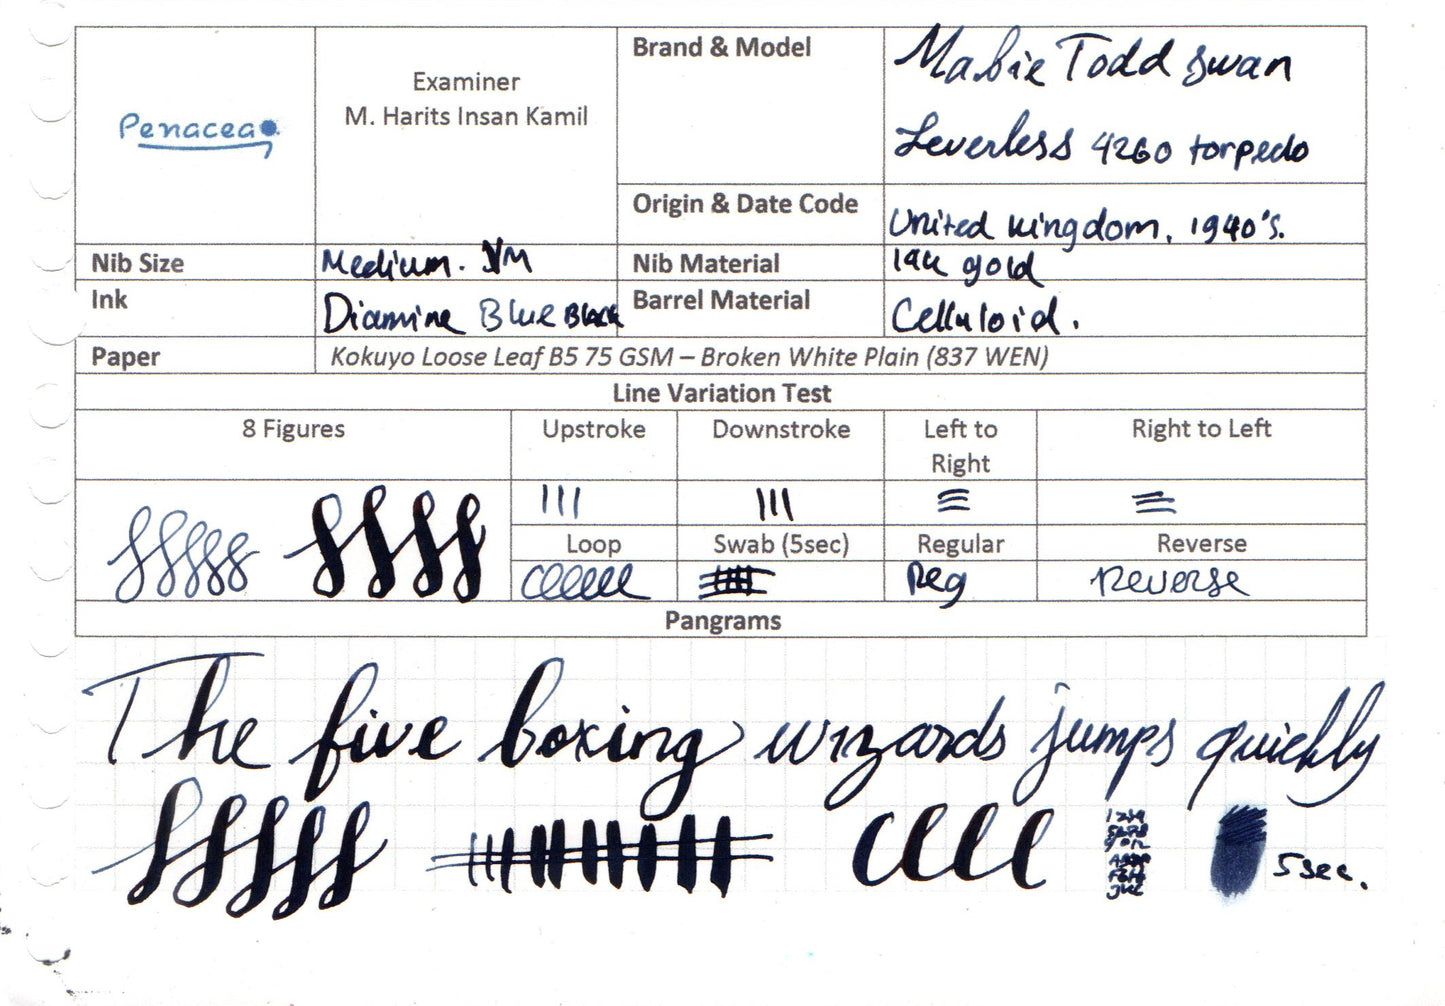 Penacea
Examiner
M. Harits Insan Kamil
Brand & Model
Mabie Todd Swan
Leverless 4260 torpedo
Origin & Date Code
United kingdom, 1940's.
Nib Size
Medium.
Nib Material
14k gold
Ink
Diamine Blue Black
Barrel Material
Celluloid.
Paper
Kokuyo Loose Leaf B5 75 GSM – Broken White Plain (837 WEN)
Line Variation Test
8 Figures
Upstroke
Downstroke
Left to
Right
Right to Left
Loop
Swab (5sec)
Regular
Reverse
Reg
Reverse
Pangrams
The five boxing wizards jumps quickly
5 sec.